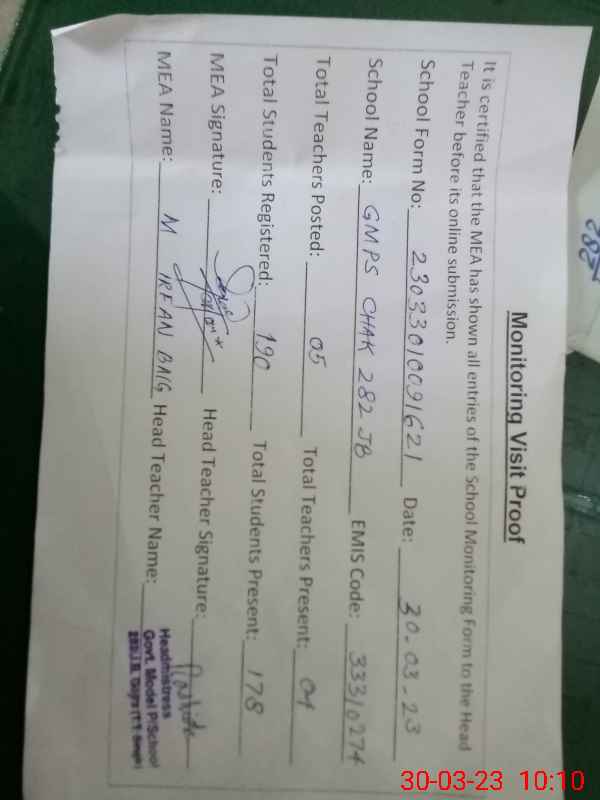 Monitoring Visit Proof
It is certified that the MEA has shown all entries of the School Monitoring Form to the Head
Teacher before its online submission.
School Form No: 23033010091621 Date: 30-03-23
School Name: GMPS CHAK 282 JB EMIS Code: 33310274
Total Teachers Posted: 05 Total Teachers Present: 04
Total Students Registered: 190 Total Students Present: 178
MEA Signature: Head Teacher Signature:
MEA Name: M IRFAN BAIG Head Teacher Name:
Headmistress
Govt. Model P/School
282/J.B.
282
30-03-23 10:10